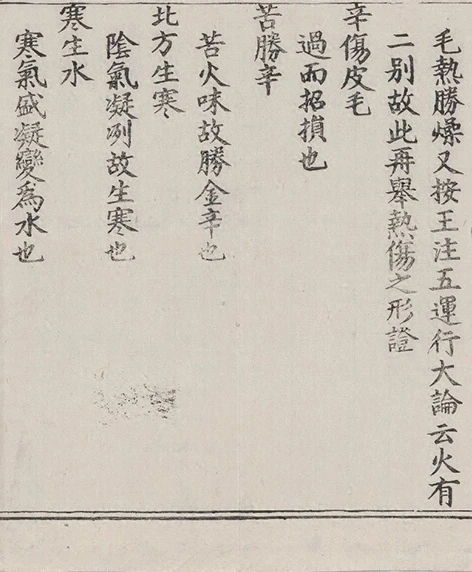 毛熱勝燥又按王注五運行大論云火有
二别故此再舉熱傷之形證
辛傷皮毛
過而招損也
苦勝辛
苦火味故勝金辛也
北方生寒
陰氣凝冽故生寒也
寒生水
寒氣盛凝變爲水也